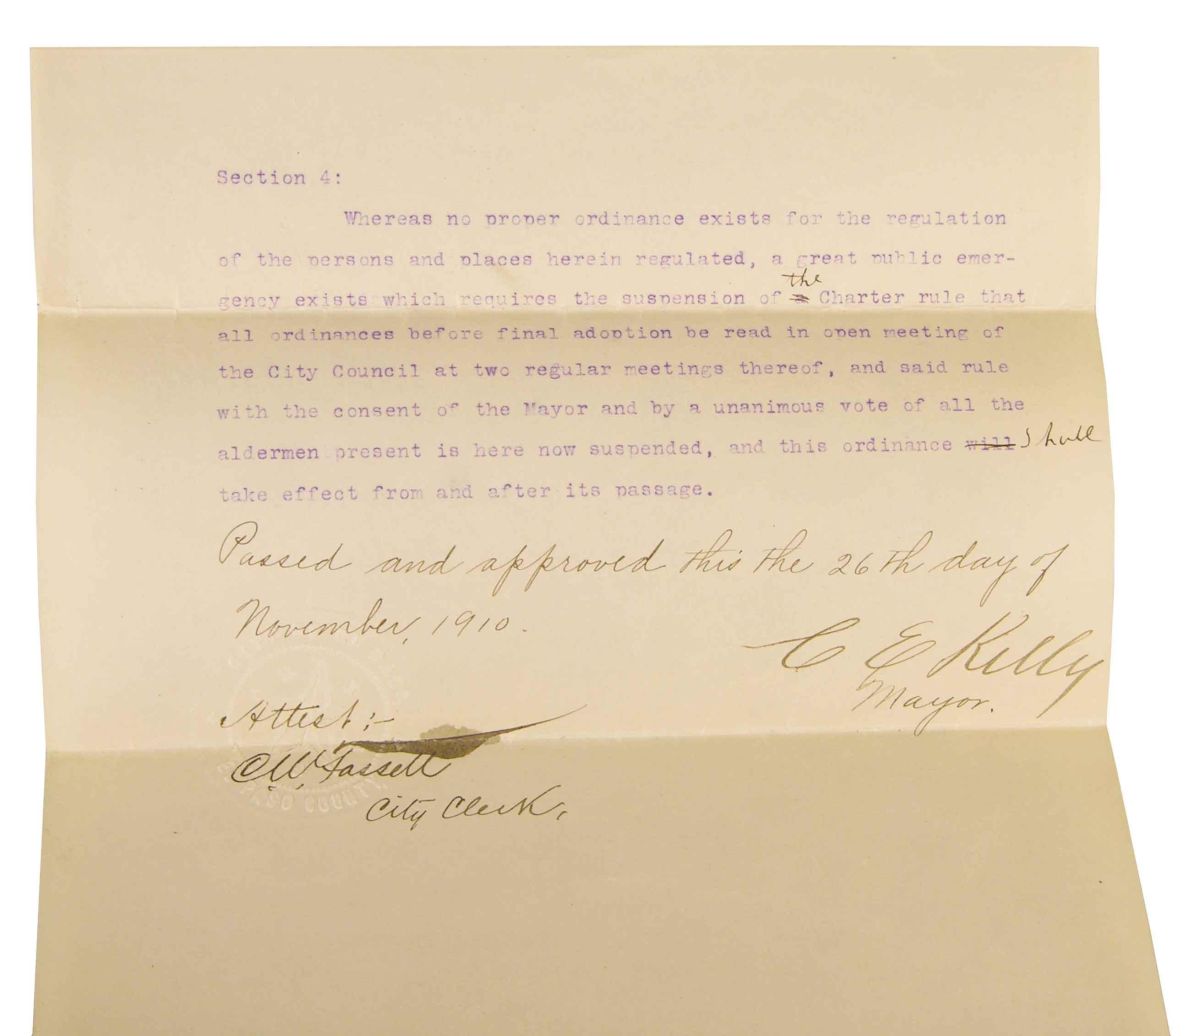 Section 4:
Whereas no proper ordinance exists for the regulation
of the persons and places herein regulated, a great public emer-
gency exists which requires the suspension of a the Charter rule that
all ordinances before final adoption be read in open meeting of
the City Council at two regular meetings thereof, and said rule
with the consent of the Mayor and by a unanimous vote of all the
aldermen present is here now suspended, and this ordinance will shall
take effect from and after its passage.
Passed and approved this the 26th day of
November, 1910.
C E Kelly
Mayor.
Attest:-
C.W. Fassett
City Clerk,
PASO COUNTY